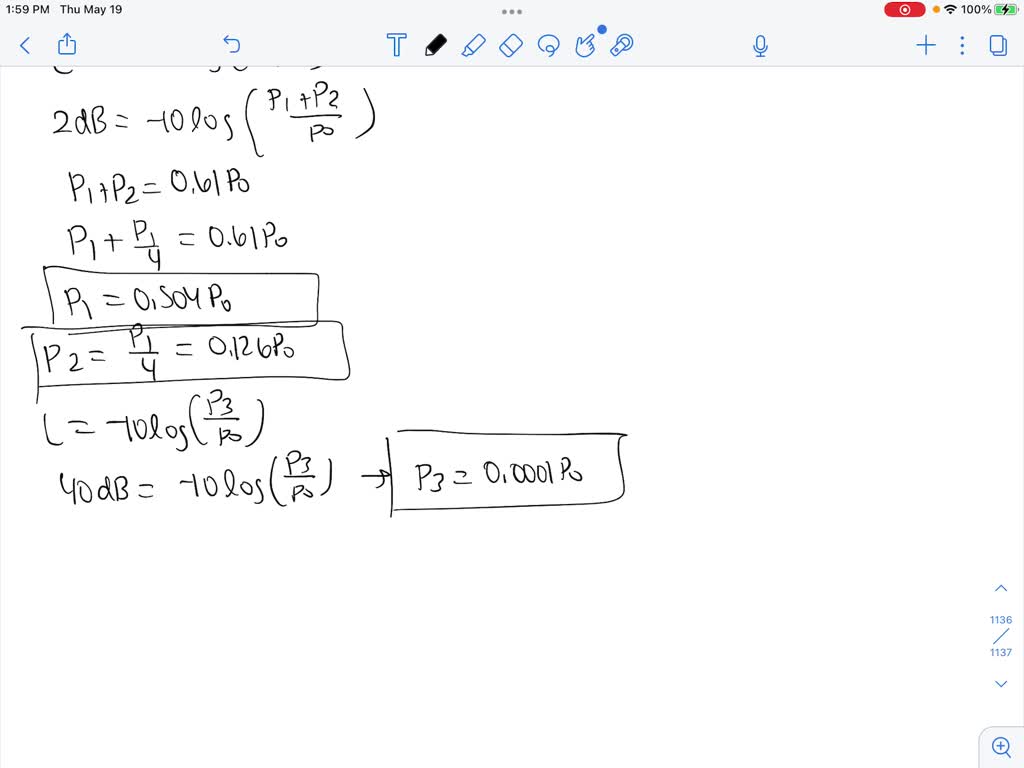 1:59 PM Thu May 19
100%
T
2dB = -10log(P1+P2/P0)
P1+P2 = 0.61P0
P1 + P1/4 = 0.61P0
P1 = 0.504P0
P2 = P1/4 = 0.126P0
L = -10log(P3/P0)
40dB = -10log(P3/P0) → P3 = 0.0001P0
1136
1137